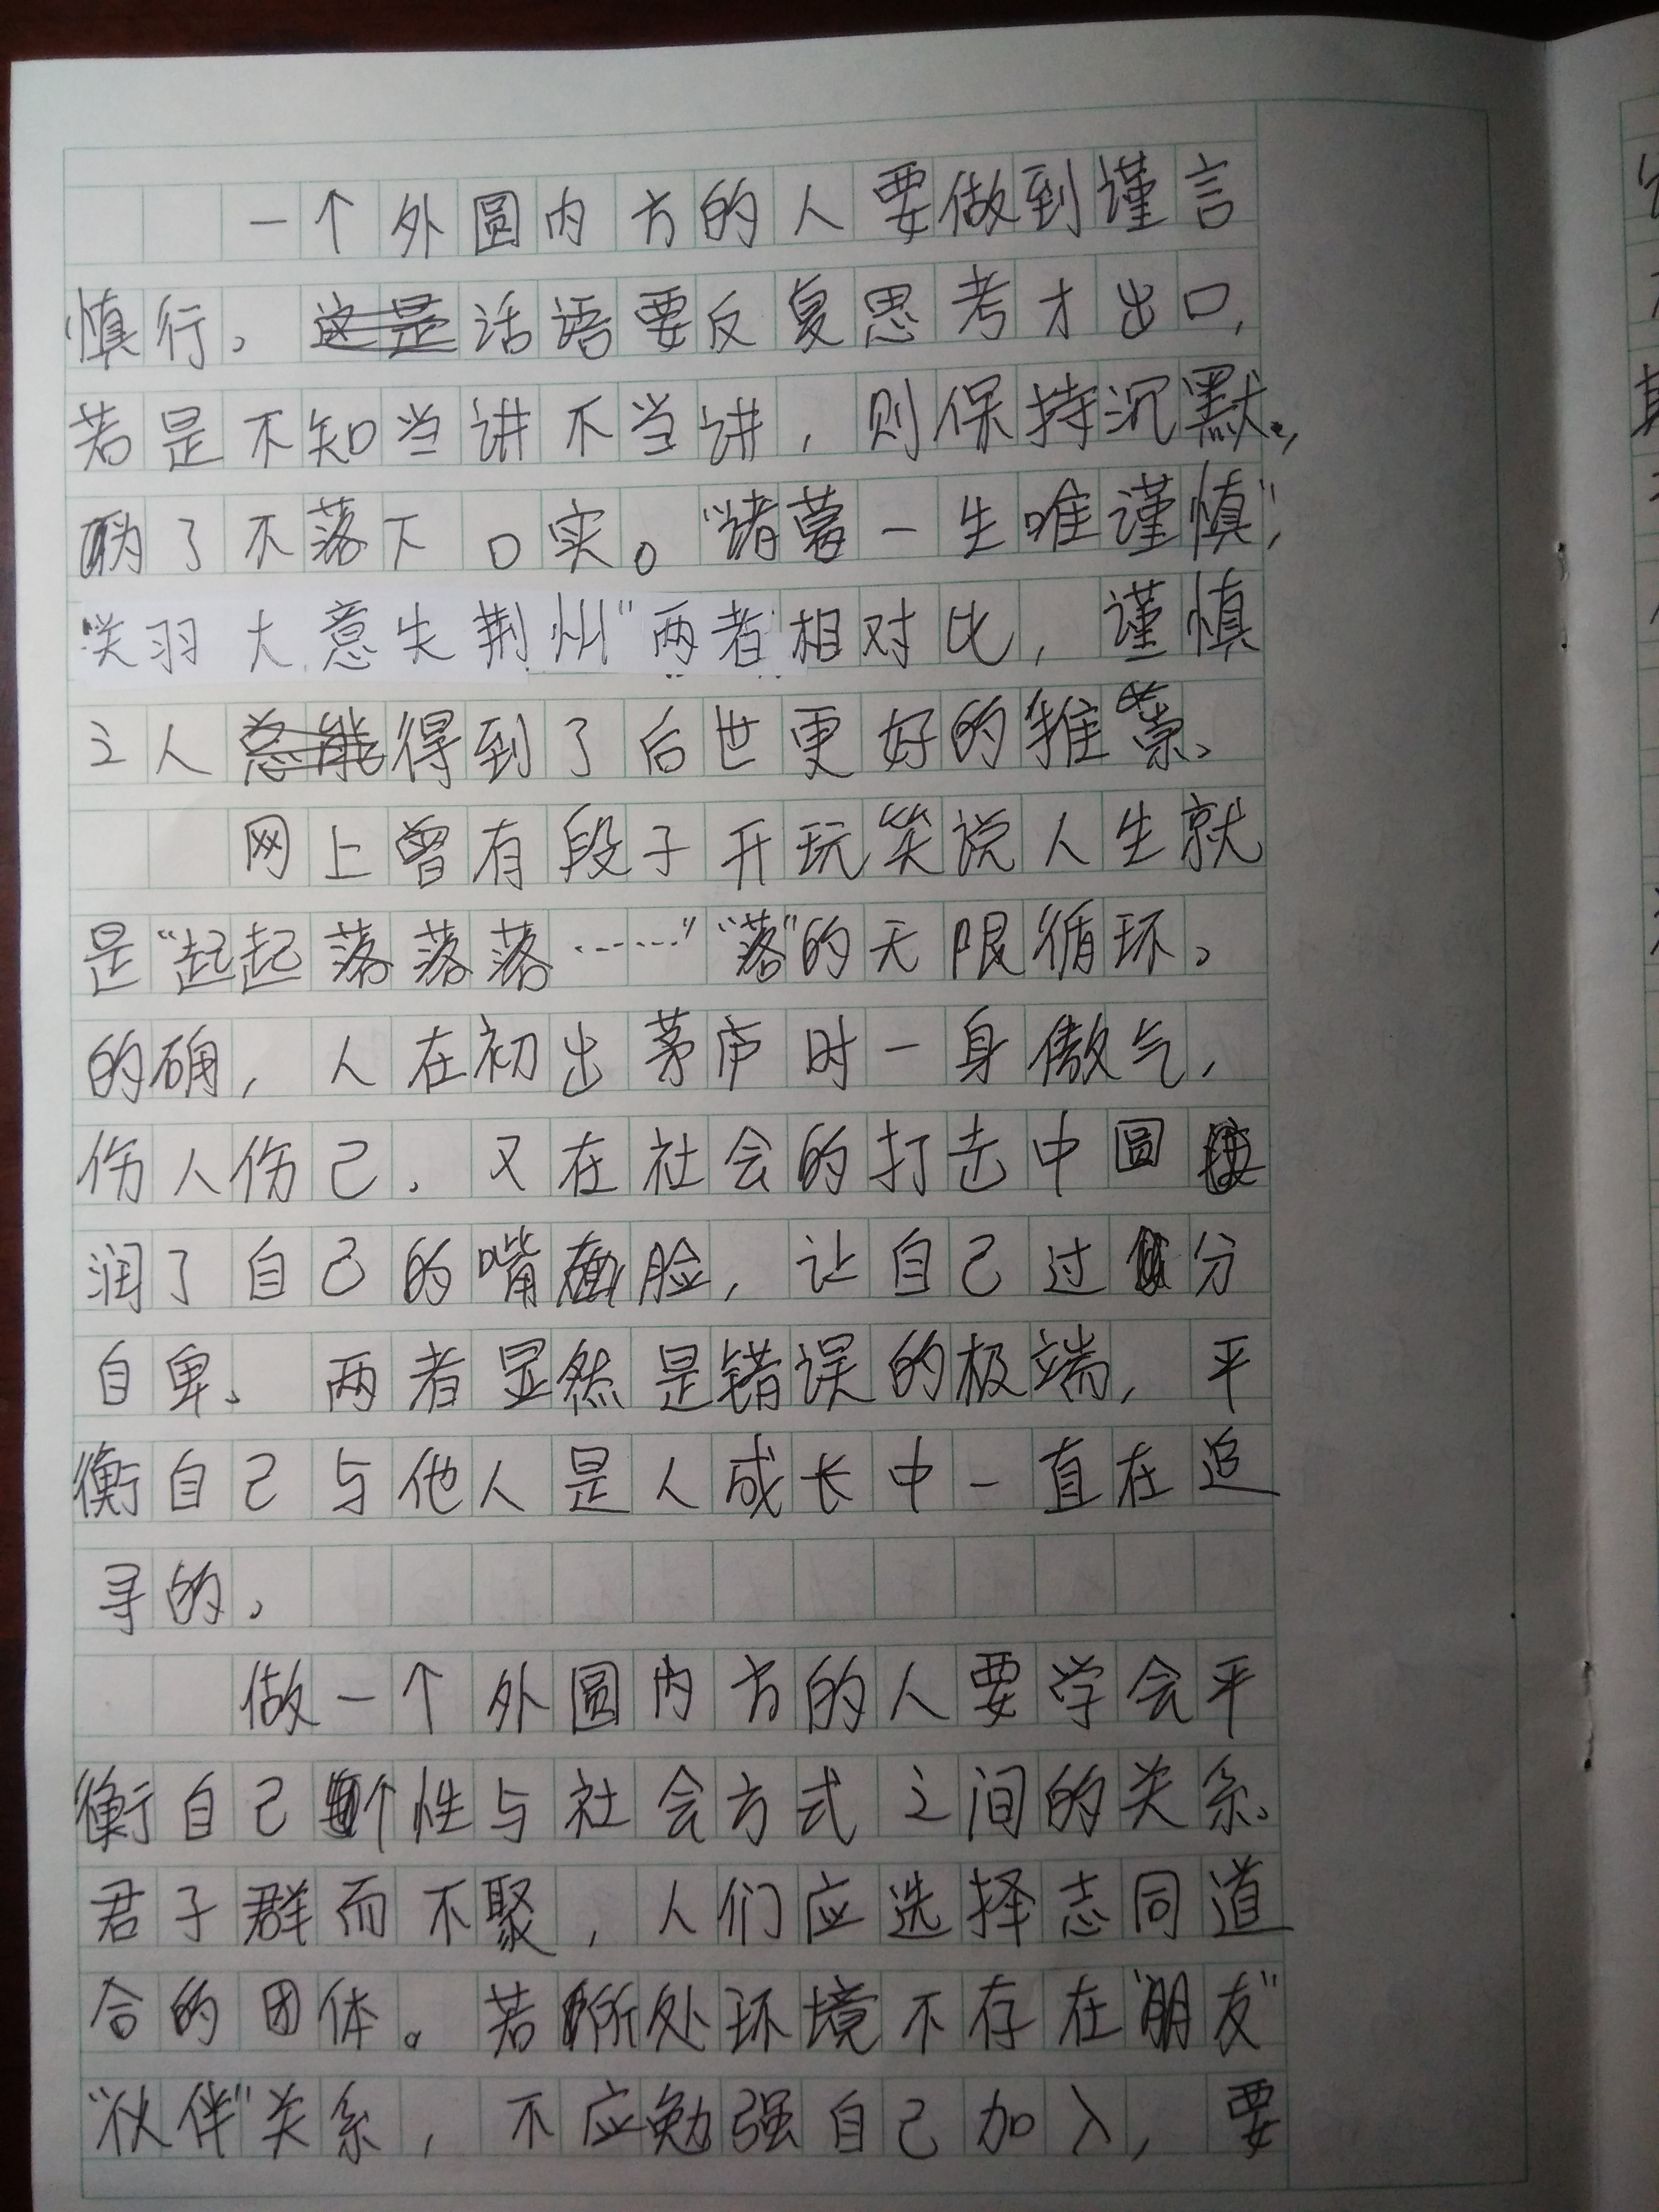 一个外圆内方的人要做到谨言
慎行。话语要反复思考才出口,
若是不知当讲不当讲,则保持沉默,
为了不落下口实。“诸葛一生唯谨慎”,
“关羽大意失荆州”两者相对比,谨慎
之人得到了后世更好的推崇。
网上曾有段子开玩笑说人生就
是“起起落落落……”“落”的无限循环。
的确,人在初出茅庐时一身傲气,
伤人伤己。又在社会的打击中圆
润了自己的嘴脸,让自己过分
自卑。两者显然是错误的极端,平
衡自己与他人是人成长中一直在追
寻的。
做一个外圆内方的人要学会平
衡自己个性与社会方式之间的关系。
君子群而不聚,人们应选择志同道
合的团体。若所处环境不存在“朋友”
“伙伴”关系,不应勉强自己加入,要